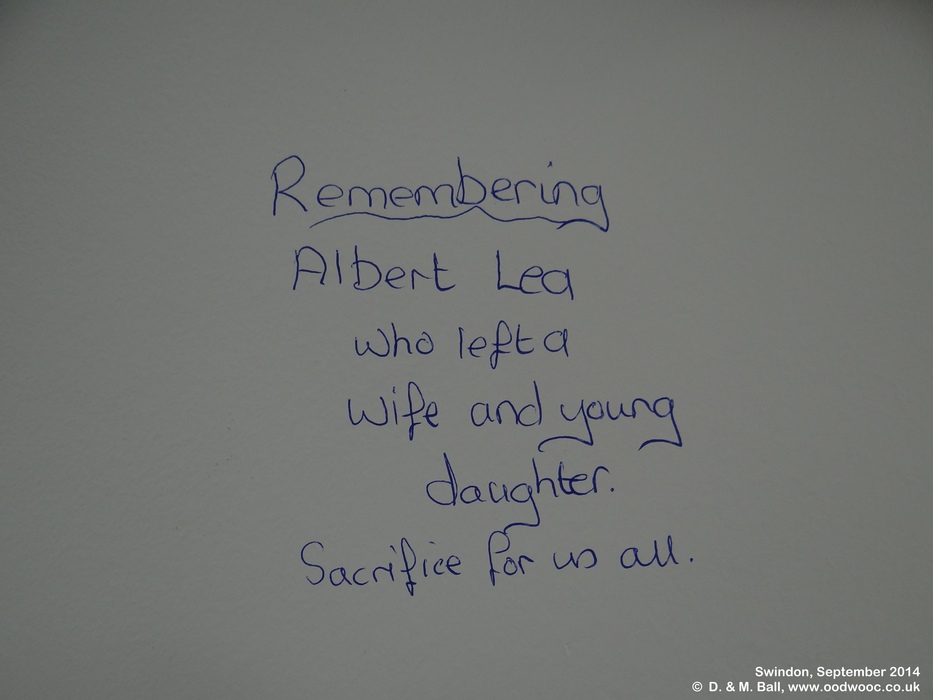 Remembering
Albert Lea
who left a
wife and young
daughter.
Sacrifice for us all.
Swindon, September 2014
© D. & M. Ball, www.oodwooc.co.uk